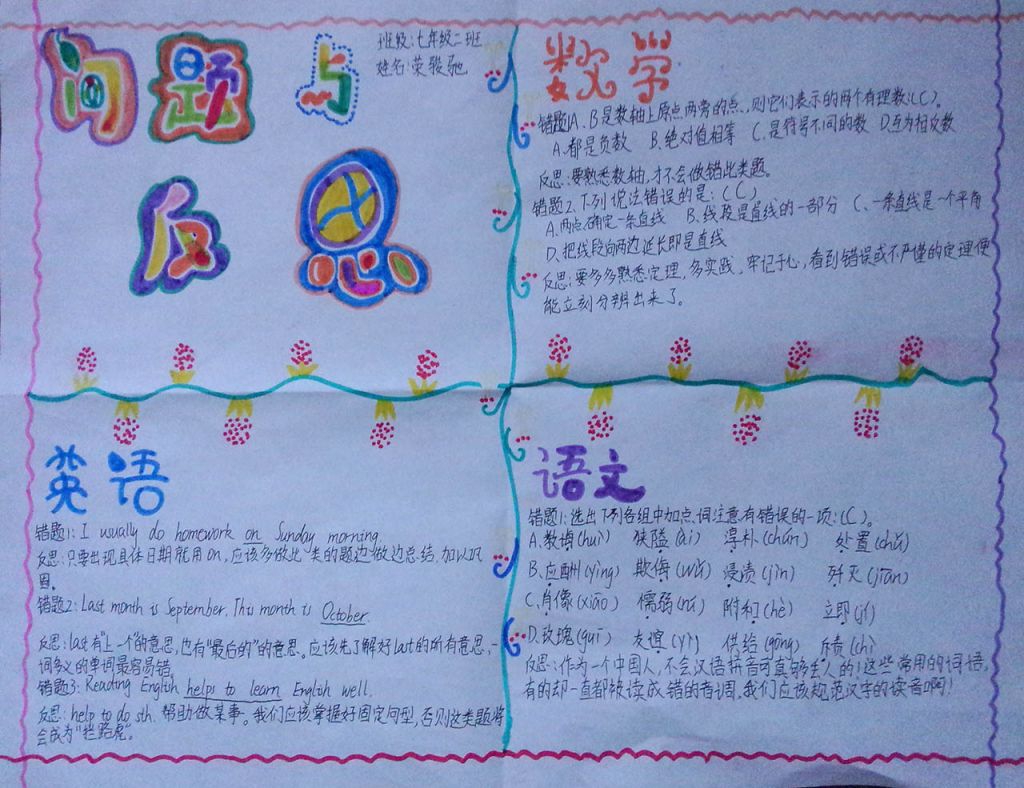 问题与
班级:七年级二班
姓名:荣骏驰
反思
数学
错题1A、B是数轴上原点两旁的点,则它们表示的两个有理数:(C)。
A.都是负数 B.绝对值相等 C.是符号不同的数 D互为相反数
反思:要熟悉数轴,才不会做错此类题。
错题2、下列说法错误的是:(C)
A.两点确定一条直线 B.线段是直线的一部分 C、一条直线是一个平角
D、把线段向两边延长即是直线
反思:要多多熟悉定理,多实践,牢记于心,看到错误或不严谨的定理便
能立刻分辨出来了。
英语
错题1:I usually do homework on Sunday morning.
反思:只要出现具体日期就用on,应该多做此类的题边做边总结,加以巩
固。
错题2:Last month is September. This month is October.
反思:last有"上一个"的意思,也有"最后的"的意思。应该先了解好last的所有意思,一
词多义的单词最容易错。
错题3:Reading English helps to learn English well.
反思:help to do sth. 帮助做某事。我们应该掌握好固定句型,否则这类题将
会成为"拦路虎"。
语文
错题1:选出下列各组中加点词注意有错误的一项:(C)。
A.教诲(huì) 狭隘(ài) 淳朴(chún) 处置(chǔ)
B.应酬(yìng) 欺侮(wǔ) 浸渍(jìn) 歼灭(jiān)
C.肖像(xiāo) 懦弱(nuò) 附和(hè) 立即(jí)
D.玫瑰(guī) 友谊(yì) 供给(gōng) 斥责(chì)
反思:作为一个中国人,不会汉语拼音可真够丢人的!这些常用的词语,
有的却一直都被读成错的音调,我们应该规范汉字的读音啊!